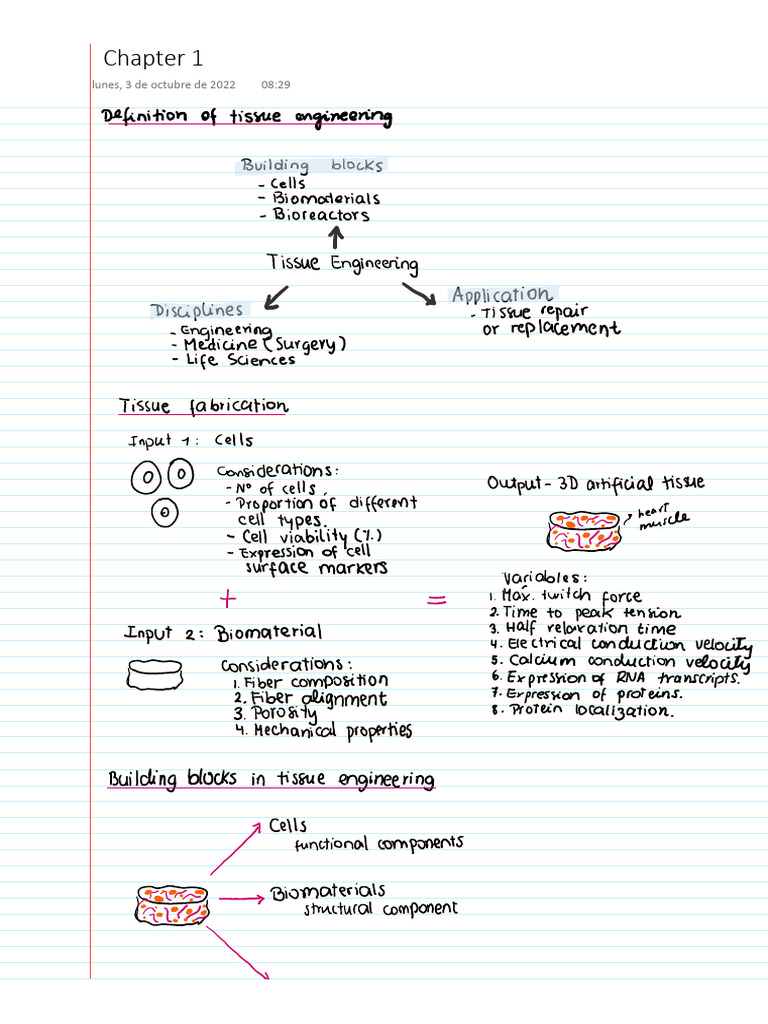 Chapter 1
lunes, 3 de octubre de 2022 08:29
Definition of tissue engineering
Building blocks
- Cells
- Biomaterials
- Bioreactors
Tissue Engineering
Disciplines
- Engineering
- Medicine (Surgery)
- Life Sciences
Application
- Tissue repair
or replacement
Tissue fabrication
Input 1: Cells
Considerations:
- Nº of cells.
- Proportion of different
cell types.
- Cell viability (%)
- Expression of cell
surface markers
+
Input 2: Biomaterial
Considerations:
1. Fiber composition
2. Fiber alignment
3. Porosity
4. Mechanical properties
=
Output - 3D artificial tissue
heart
muscle
Variables:
1. Max. twitch force
2. Time to peak tension
3. Half relaxation time
4. Electrical conduction velocity
5. Calcium conduction velocity
6. Expression of RNA transcripts.
7. Expression of proteins.
8. Protein localization.
Building blocks in tissue engineering
Cells
functional components
Biomaterials
structural component